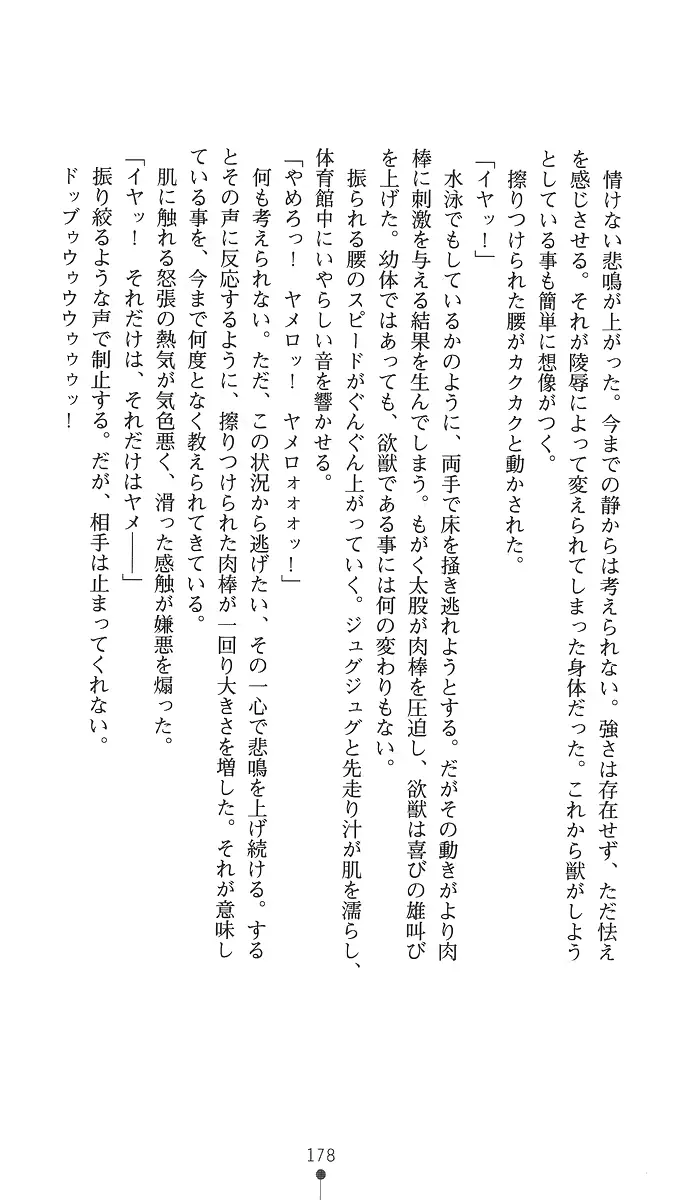 情けない悲鳴が上がった。今までの静からは考えられない。強さは存在せず、ただ怯え
を感じさせる。それが陵辱によって変えられてしまった身体だった。これから獣がしよう
としている事も簡単に想像がつく。
擦りつけられた腰がカクカクと動かされた。
「イヤッ！」
水泳でもしているかのように、両手で床を掻き逃れようとする。だがその動きがより肉
棒に刺激を与える結果を生んでしまう。もがく太股が肉棒を圧迫し、欲獣は喜びの雄叫び
を上げた。幼体ではあっても、欲獣である事には何の変わりもない。
振られる腰のスピードがぐんぐん上がっていく。ジュグジュグと先走り汁が肌を濡らし、
体育館中にいやらしい音を響かせる。
「やめろっ！　ヤメロッ！　ヤメロォォォッ！」
何も考えられない。ただ、この状況から逃げたい、その一心で悲鳴を上げ続ける。する
とその声に反応するように、擦りつけられた肉棒が一回り大きさを増した。それが意味し
ている事を、今まで何度となく教えられてきている。
肌に触れる怒張の熱気が気色悪く、滑った感触が嫌悪を煽った。
「イヤッ！　それだけは、それだけはヤメ――」
振り絞るような声で制止する。だが、相手は止まってくれない。
ドッブゥウゥウウゥゥゥッ！
178